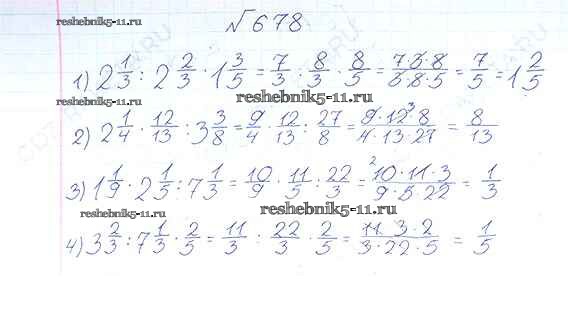 №678
reshebnik5-11.ru
1) 2 1/3 : 2 2/3 · 1 3/5 = 7/3 : 8/3 · 8/5 = 7·3·8/3·8·5 = 7/5 = 1 2/5
reshebnik5-11.ru
reshebnik5-11.ru
2) 2 1/4 · 12/13 : 3 3/8 = 9/4 · 12/13 : 27/8 = 9·12·8/4·13·27 = 8/13
3) 1 1/9 · 2 1/5 : 7 1/3 = 10/9 · 11/5 : 22/3 = 10·11·3/9·5·22 = 1/3
reshebnik5-11.ru
reshebnik5-11.ru
4) 3 2/3 : 7 1/3 · 2/5 = 11/3 : 22/3 · 2/5 = 11·3·2/3·22·5 = 1/5